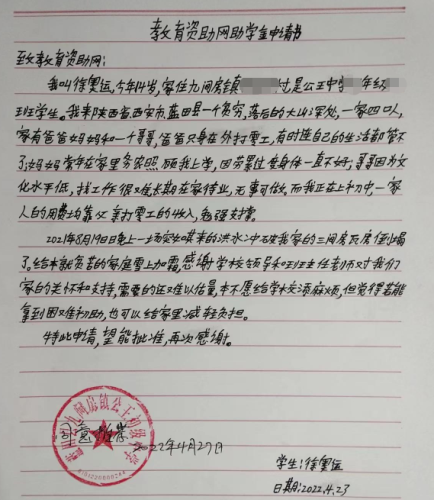 教育资助网助学金申请书
致教育资助网:
我叫徐奥运,今年14岁,家住九间房镇 村是公王中学 年级
班学生。我来陕西省西安市蓝田县一个贫穷,落后的大山深处,一家四口人,
家有爸爸妈妈和一个哥哥,爸爸只身在外打零工,有时连自己的生活都管不
了;妈妈常年在家里务农照顾我上学,因劳累过度身体一直不好;哥哥因为文
化水平低,找工作很难长期在家待业,无事可做,而我正在上初中一家
人的费用均靠父亲打零工的收入,勉强支撑。
2021年8月19日晚上一场突如其来的洪水冲 我家的三间房瓦房倒塌
了。给本就负苦的家庭雪上加霜,感谢学校领导和班主任老师对我们
家的关怀和支持,需要的还难以估量,本不愿给学校添麻烦,但觉得若能
拿到困难补助,也可以给家里减轻负担。
特此申请,望能批准,再次感谢。
九间房镇公王初级中学
同意
2022年4月27日
学生:徐奥运
日期:2022.4.23